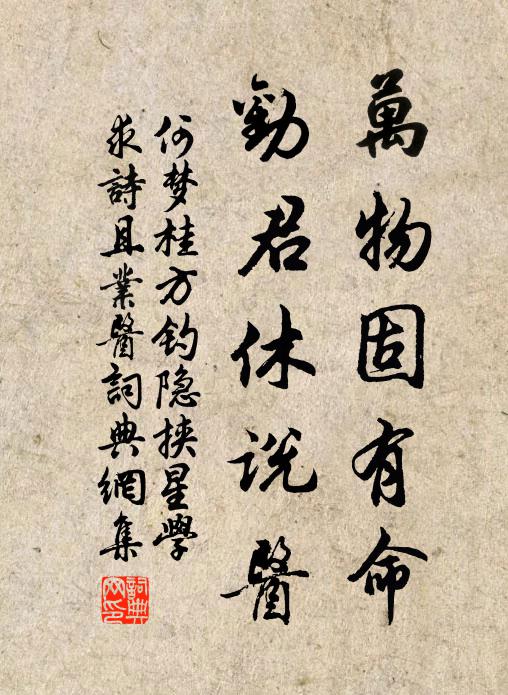 萬物固有命
勸君休説醫
何梦桂方钓隐挟星學
求詩且業醫詞典網集
詞典網印